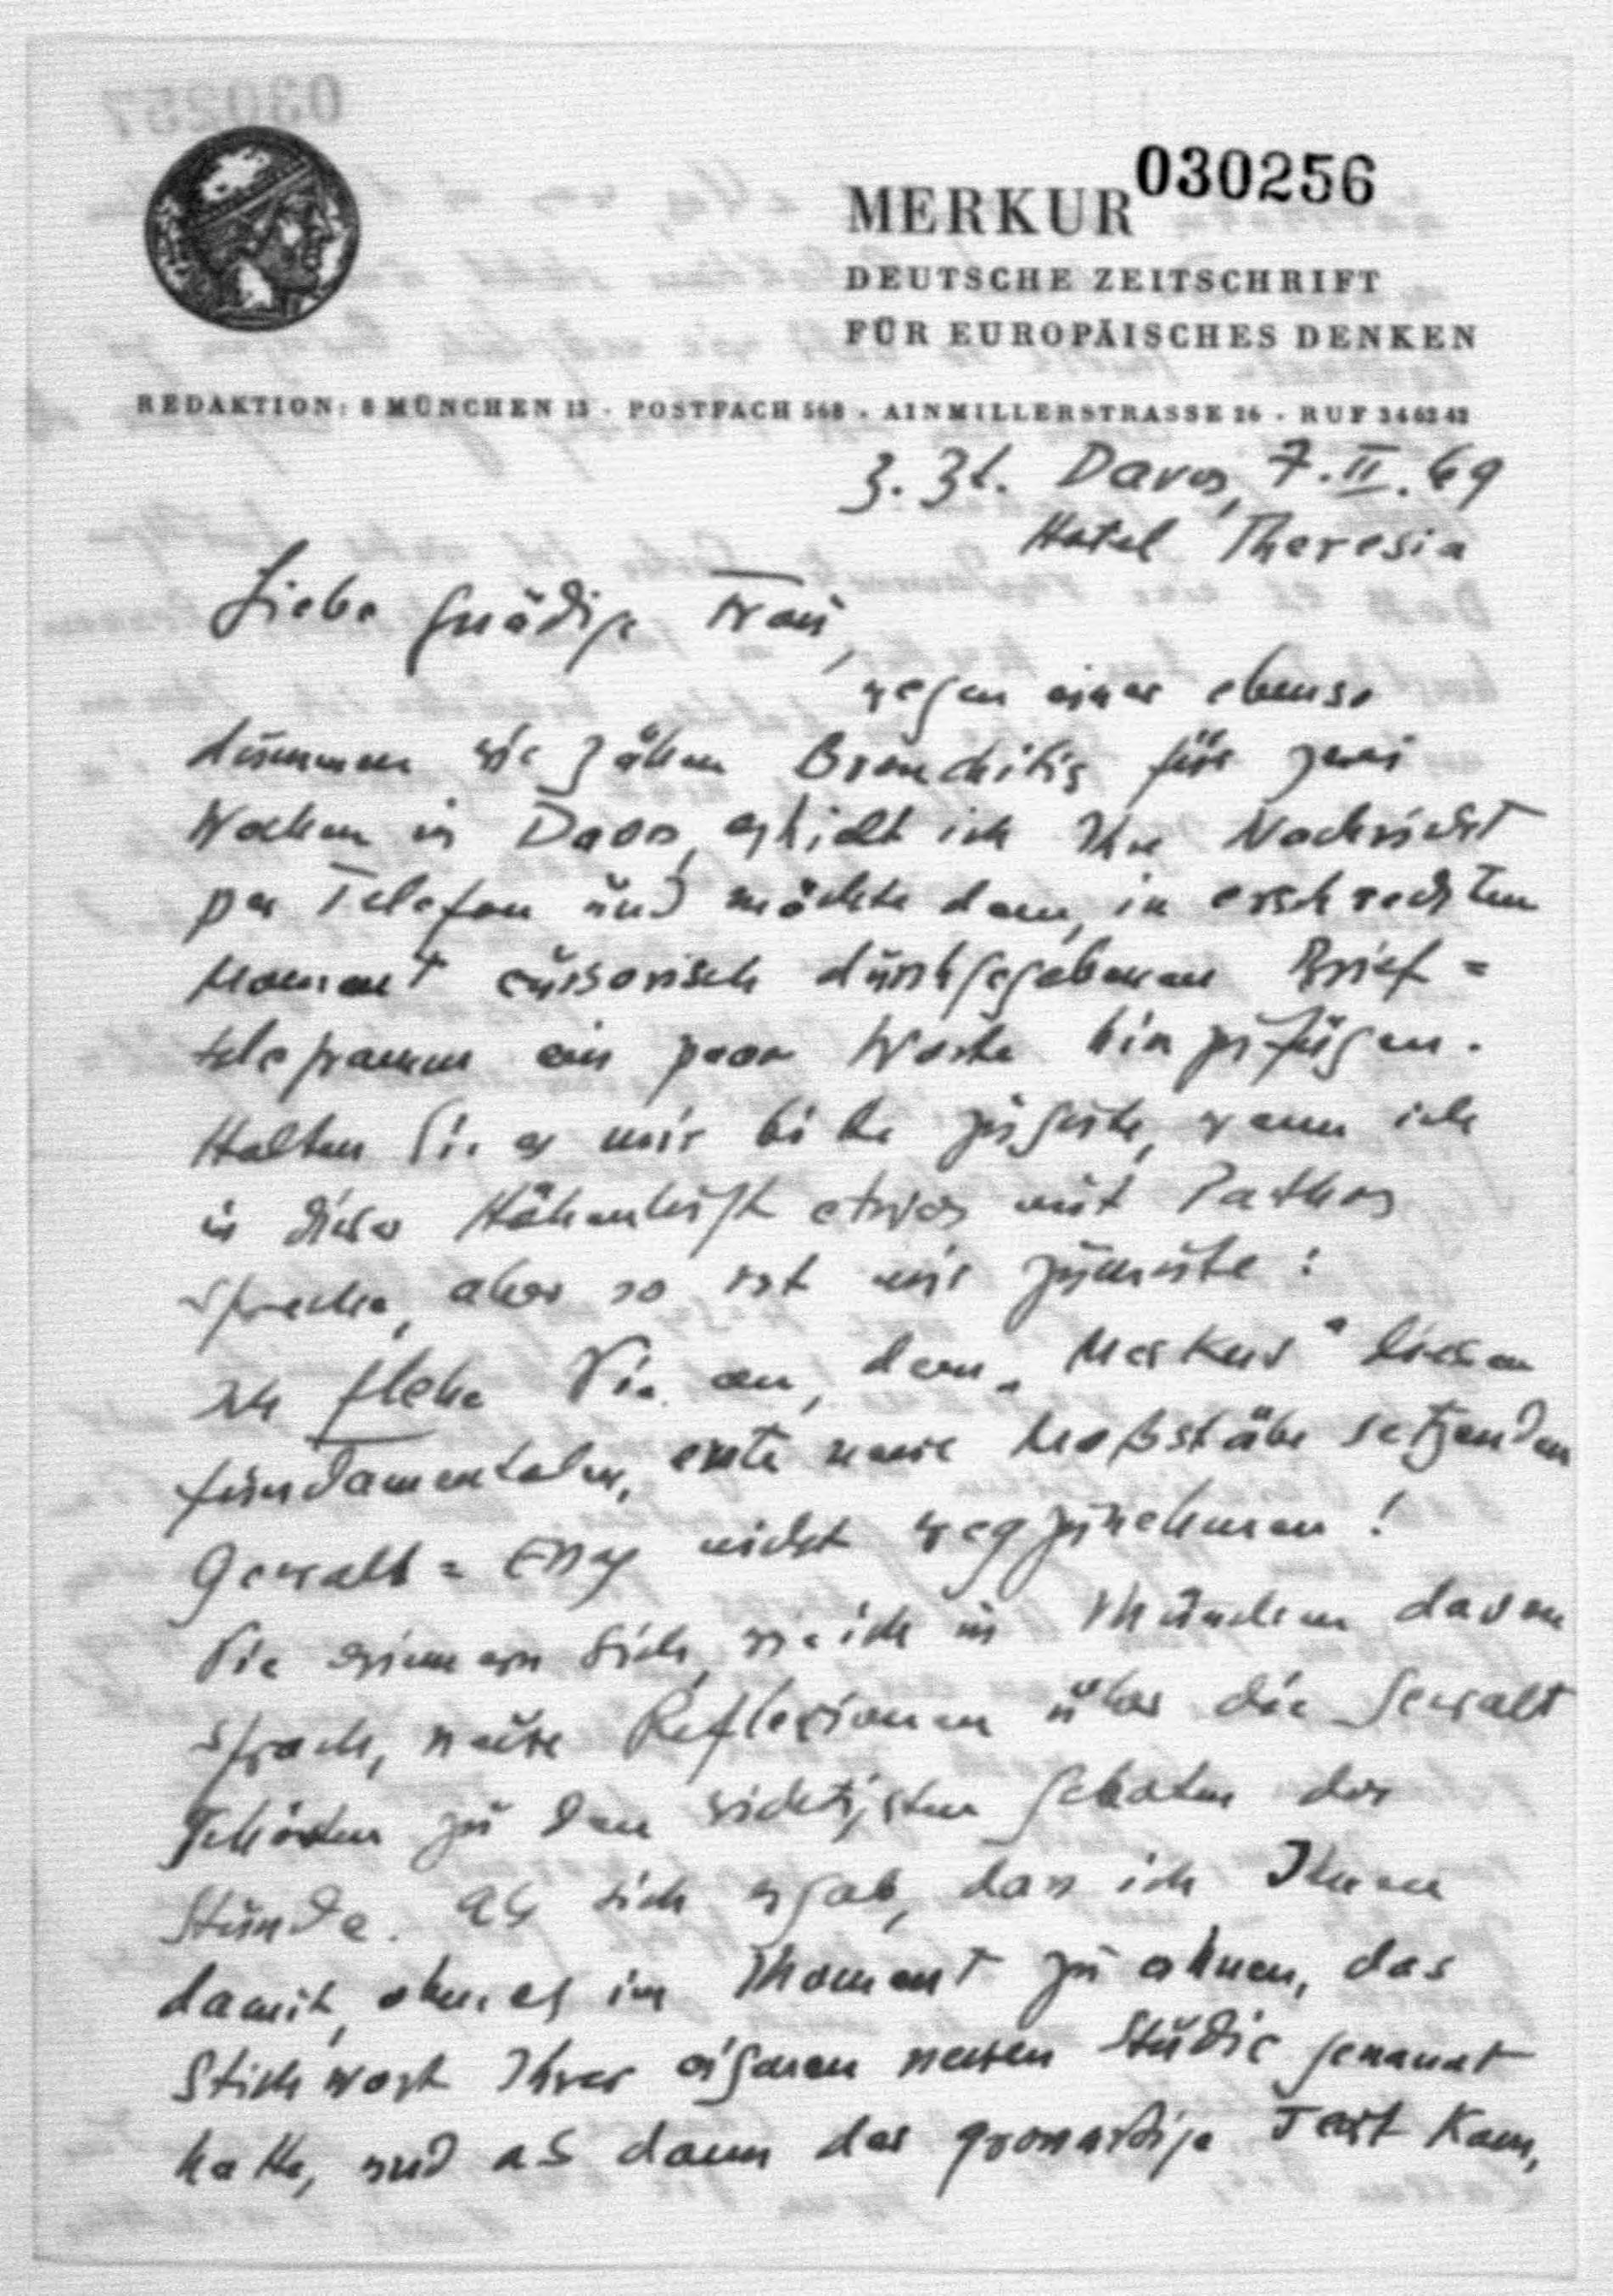 030256
MERKUR
DEUTSCHE ZEITSCHRIFT
FÜR EUROPÄISCHES DENKEN
REDAKTION: 8 MÜNCHEN 13 · POSTFACH 568 · AINMILLERSTRASSE 26 · RUF 34 62 42
z. Zt. Davos, 7. II. 69
Hotel Theresia
Liebe gnädige Frau,
wegen einer ebenso
dummen wie zähen Bronchitis für zwei
Wochen in Davos, erhielt ich Ihre Nachricht
per Telefon und möchte dem, im erschreckten
Moment cursorisch durchgegebenen Brief=
telegramm ein paar Worte hinzufügen.
Halten Sie es mir bitte zugute, wenn ich
in dieser Höhenluft etwas mit Pathos
spreche, aber so ist mir zumute:
Ich flehe Sie an, dem „Merkur" diesen
fundamentalen, neue Maßstäbe setzenden
Gewalt=Essay nicht wegzunehmen!
Sie erinnern sich, wie ich in München davon
sprach, neue Reflexionen über die Gewalt
gehörten zu den wichtigsten Geboten der
Stunde. Als sich ergab, dass ich Ihnen
damit, ohne es im Moment zu ahnen, das
Stichwort Ihrer eigenen neuen Studie genannt
hatte, und als dann der grossartige Text kam,